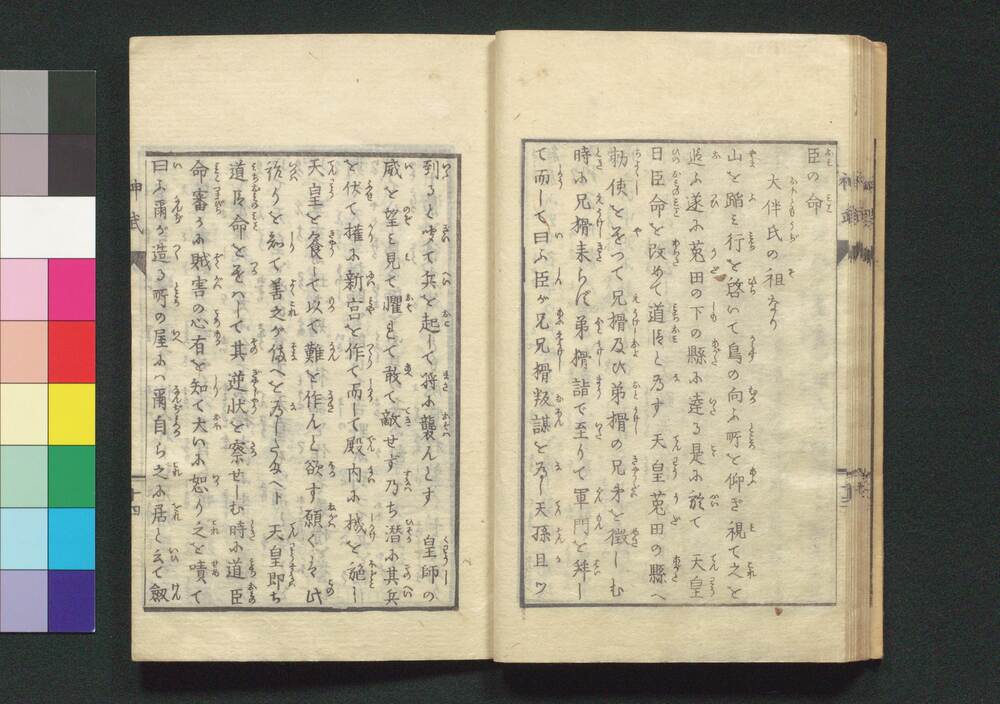 臣の命
大伴氏の祖なり
山を踏ミ行を啓いて烏の向ふ所を仰き視て之を
追ふ遂に菟田の下の縣に達る是に於て　天皇
日臣命を改めて道臣と為す　天皇菟田の縣へ
勅使をそつて兄猾及ひ弟猾の兄弟を徴しむ
時に兄猾来らず弟猾詣で至りて軍門を拜し
て而して曰ふ臣が兄兄猾叛謀を為し天孫且ツ
到ると聞て兵を起して将に襲んとす　皇師の
威を望ミ見て懼れて敢て敵せず乃ち潜に其兵
を伏て権に新宮を作て而して殿内に機を施し
天皇を饗して以て難を作んと欲す願くは此
詐りを知て善之が備へを為したまへト　天皇即ち
道臣命をそハして其逆状を察せしむ時に道臣
命審うに賊害の心有を知て大いに怒り之を嘖て
曰ふ爾が造る所の屋にハ爾自ら之に居と云て劔
神武
十四